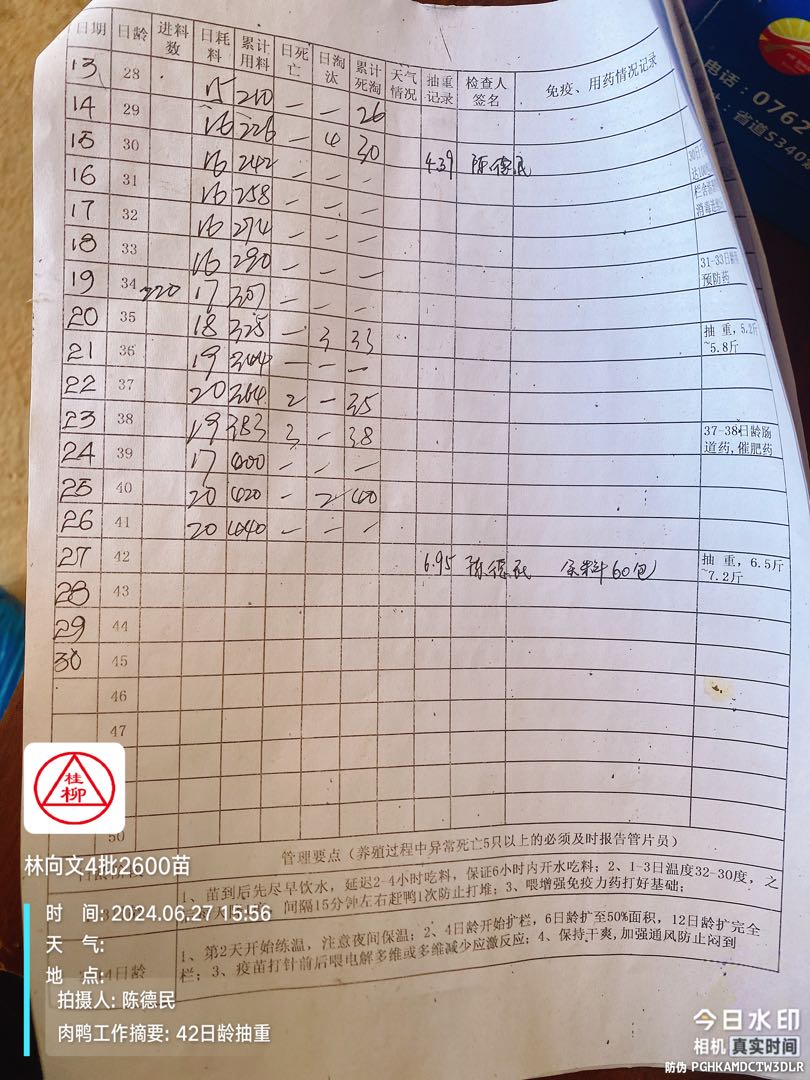 电话：0762
址：省道S340
日期 日龄 进料数 日耗料 累计用料 日死亡 日淘汰 累计死淘 天气情况 抽重记录 检查人签名 免疫、用药情况记录
13 28 15 210 — — 26
14 29 16 226 — 4 30
15 30 16 242 — — — 4.39 陈德民
16 31 16 258 — — —
17 32 16 274 — — —
18 33 16 290 — — — 31-33日龄 预防药
19 34 220 17 307 — — —
20 35 18 325 — 3 33 抽重，5.2斤~5.8斤
21 36 19 344 — — —
22 37 20 364 2 — 35
23 38 19 383 3 — 38 37-38日龄肠道药,催肥药
24 39 17 400 — — —
25 40 20 420 — 2 40
26 41 20 440 — — —
27 42 6.95 陈德民 余料60包 抽重，6.5斤~7.2斤
28 43
29 44
30 45
46
47
50
管理要点（养殖过程中异常死亡5只以上的必须及时报告管片员）
1、苗到后先尽早饮水，延迟2-4小时吃料，保证6小时内开水吃料；2、1-3日温度32-30度，之
间隔15分钟左右赶鸭1次防止打堆；3、喂增强免疫力药打好基础；
1、第2天开始练温，注意夜间保温；2、4日龄开始扩栏，6日龄扩至50%面积，12日龄扩完全
栏；3、疫苗打针前后喂电解多维或多维减少应激反应；4、保持干爽,加强通风防止闷到
4日龄
桂柳
林向文4批2600苗
时 间: 2024.06.27 15:56
天 气:
地 点:
拍摄人: 陈德民
肉鸭工作摘要: 42日龄抽重
今日水印
相机 真实时间
防伪 PGHKAMDCTW3DLR